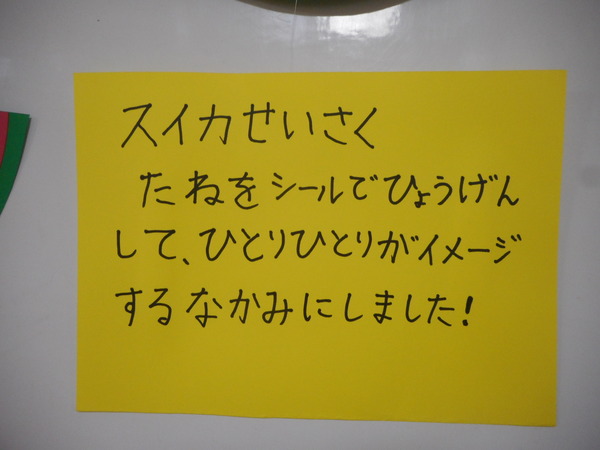 スイカせいさく
たねをシールでひょうげん
して、ひとりひとりがイメージ
するなかみにしました!